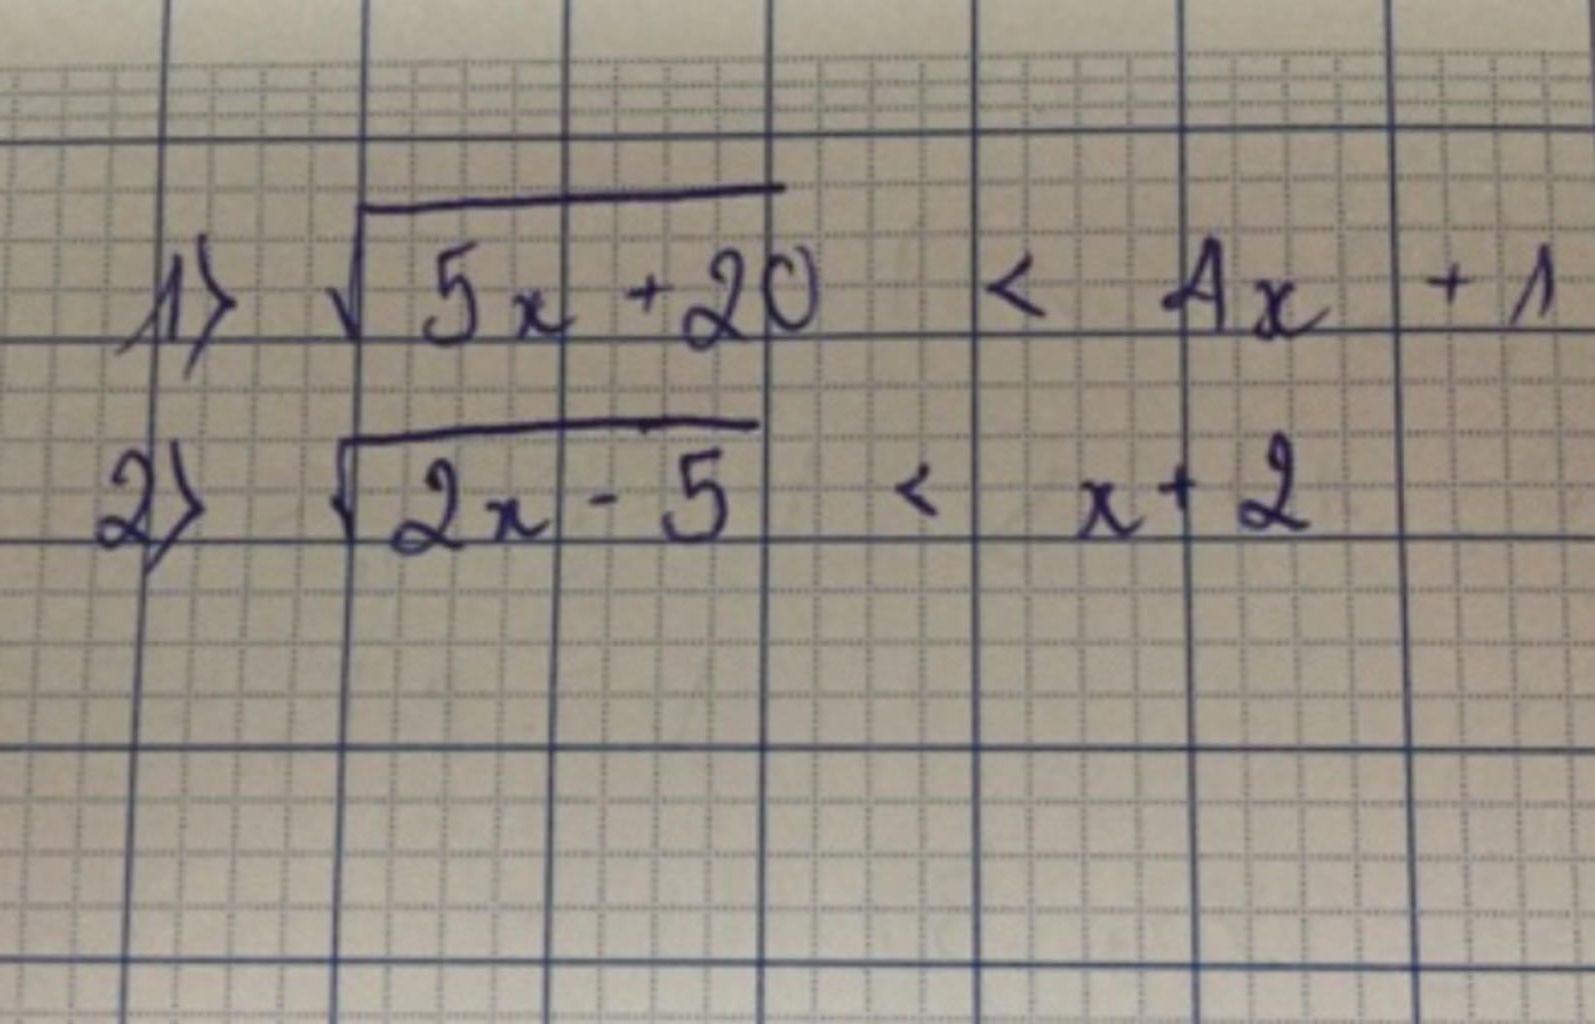 1) √5x + 20 < 4x + 1
2) √2x - 5 < x + 2